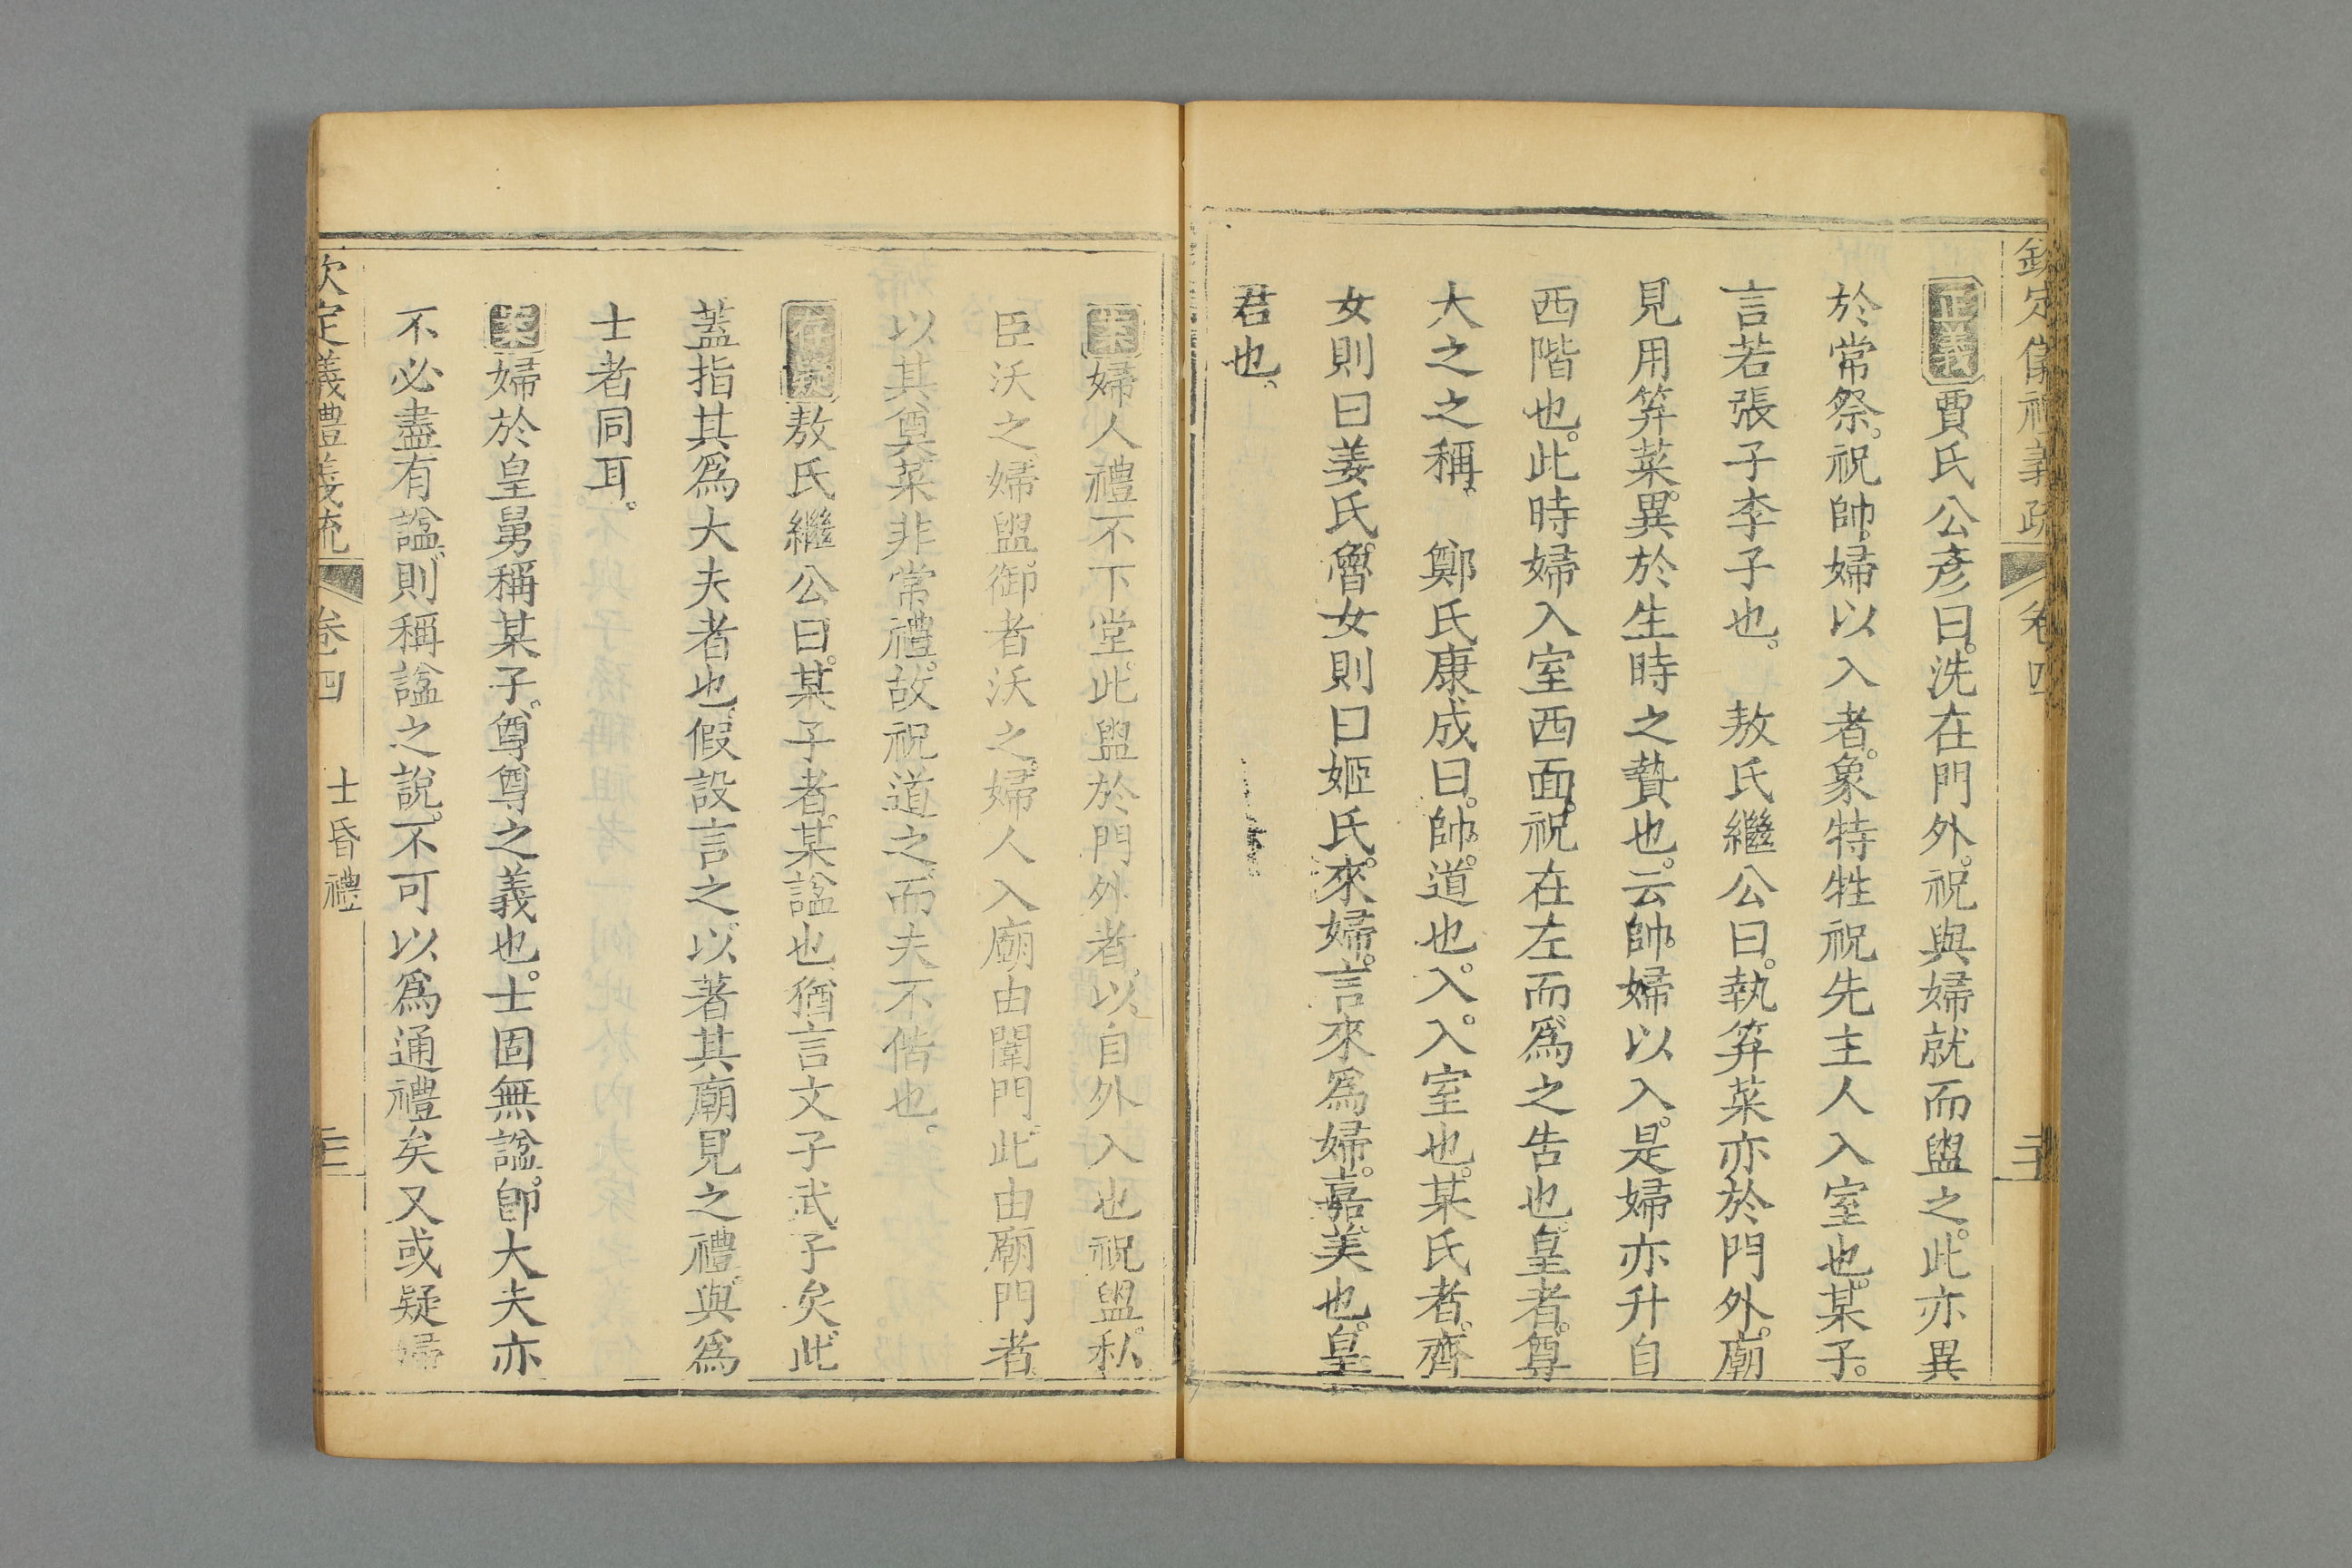 欽定儀禮義疏 卷四
正義賈氏公彥曰。洗在門外。祝與婦就而盥之。此亦異
於常祭。祝帥婦以入者。象特牲祝先主人入室也。某子。
言若張子李子也。 敖氏繼公曰。執笲菜亦於門外。廟
見用笲菜。異於生時之贄也。云帥婦以入。是婦亦升自
西階也。此時婦入室西面。祝在左而爲之告也。皇者。尊
大之之稱。 鄭氏康成曰。帥。道也。入。入室也。某氏者。齊
女則曰姜氏。魯女則曰姬氏。來婦。言來爲婦。嘉。美也。皇。
君也。
案婦人禮不下堂。此盥於門外者。以自外入也。祝盥。私
臣沃之。婦盥。御者沃之。婦人入廟由闈門。此由廟門者。
以其奠菜非常禮。故祝道之。而夫不偕也。
存疑敖氏繼公曰。某子者。某諡也。猶言文子武子矣。此
蓋指其爲大夫者也。假設言之。以著其廟見之禮。與爲
士者同耳。
案婦於皇舅稱某子。尊尊之義也。士固無諡。卽大夫亦
不必盡有諡。則稱諡之說。不可以爲通禮矣。又或疑婦
欽定儀禮義疏 卷四 士昏禮